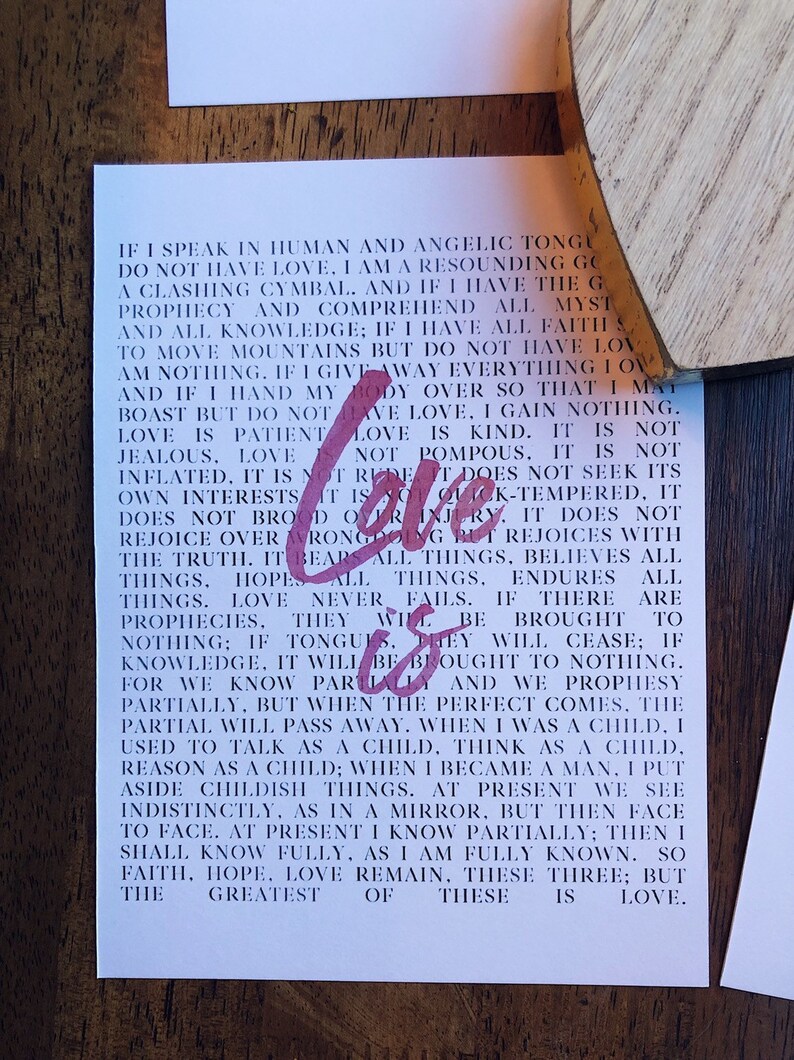 IF I SPEAK IN HUMAN AND ANGELIC
DO NOT HAVE LOVE, I AM A RESOUNDING
A CLASHING CYMBAL. AND IF I HAVE THE
PROPHECY AND COMPREHEND ALL
AND ALL KNOWLEDGE; IF I HAVE ALL FAITH
TO MOVE MOUNTAINS BUT DO NOT HAVE
AM NOTHING. IF I GIVE AWAY EVERYTHING I
AND IF I HAND MY BODY OVER SO THAT I MAY
BOAST BUT DO NOT HAVE LOVE, I GAIN NOTHING.
LOVE IS PATIENT, LOVE IS KIND. IT IS NOT
JEALOUS, LOVE IS NOT POMPOUS, IT IS NOT
INFLATED, IT IS NOT RUDE, IT DOES NOT SEEK ITS
OWN INTERESTS, IT IS NOT QUICK-TEMPERED, IT
DOES NOT BROOD OVER INJURY, IT DOES NOT
REJOICE OVER WRONGDOING BUT REJOICES WITH
THE TRUTH. IT BEARS ALL THINGS, BELIEVES ALL
THINGS, HOPES ALL THINGS, ENDURES ALL
THINGS. LOVE NEVER FAILS. IF THERE ARE
PROPHECIES, THEY WILL BE BROUGHT TO
NOTHING; IF TONGUES, THEY WILL CEASE; IF
KNOWLEDGE, IT WILL BE BROUGHT TO NOTHING.
FOR WE KNOW PARTIALLY AND WE PROPHESY
PARTIALLY, BUT WHEN THE PERFECT COMES, THE
PARTIAL WILL PASS AWAY. WHEN I WAS A CHILD, I
USED TO TALK AS A CHILD, THINK AS A CHILD,
REASON AS A CHILD; WHEN I BECAME A MAN, I PUT
ASIDE CHILDISH THINGS. AT PRESENT WE SEE
INDISTINCTLY, AS IN A MIRROR, BUT THEN FACE
TO FACE. AT PRESENT I KNOW PARTIALLY; THEN I
SHALL KNOW FULLY, AS I AM FULLY KNOWN. SO
FAITH, HOPE, LOVE REMAIN, THESE THREE; BUT
THE GREATEST OF THESE IS LOVE.
Love
is